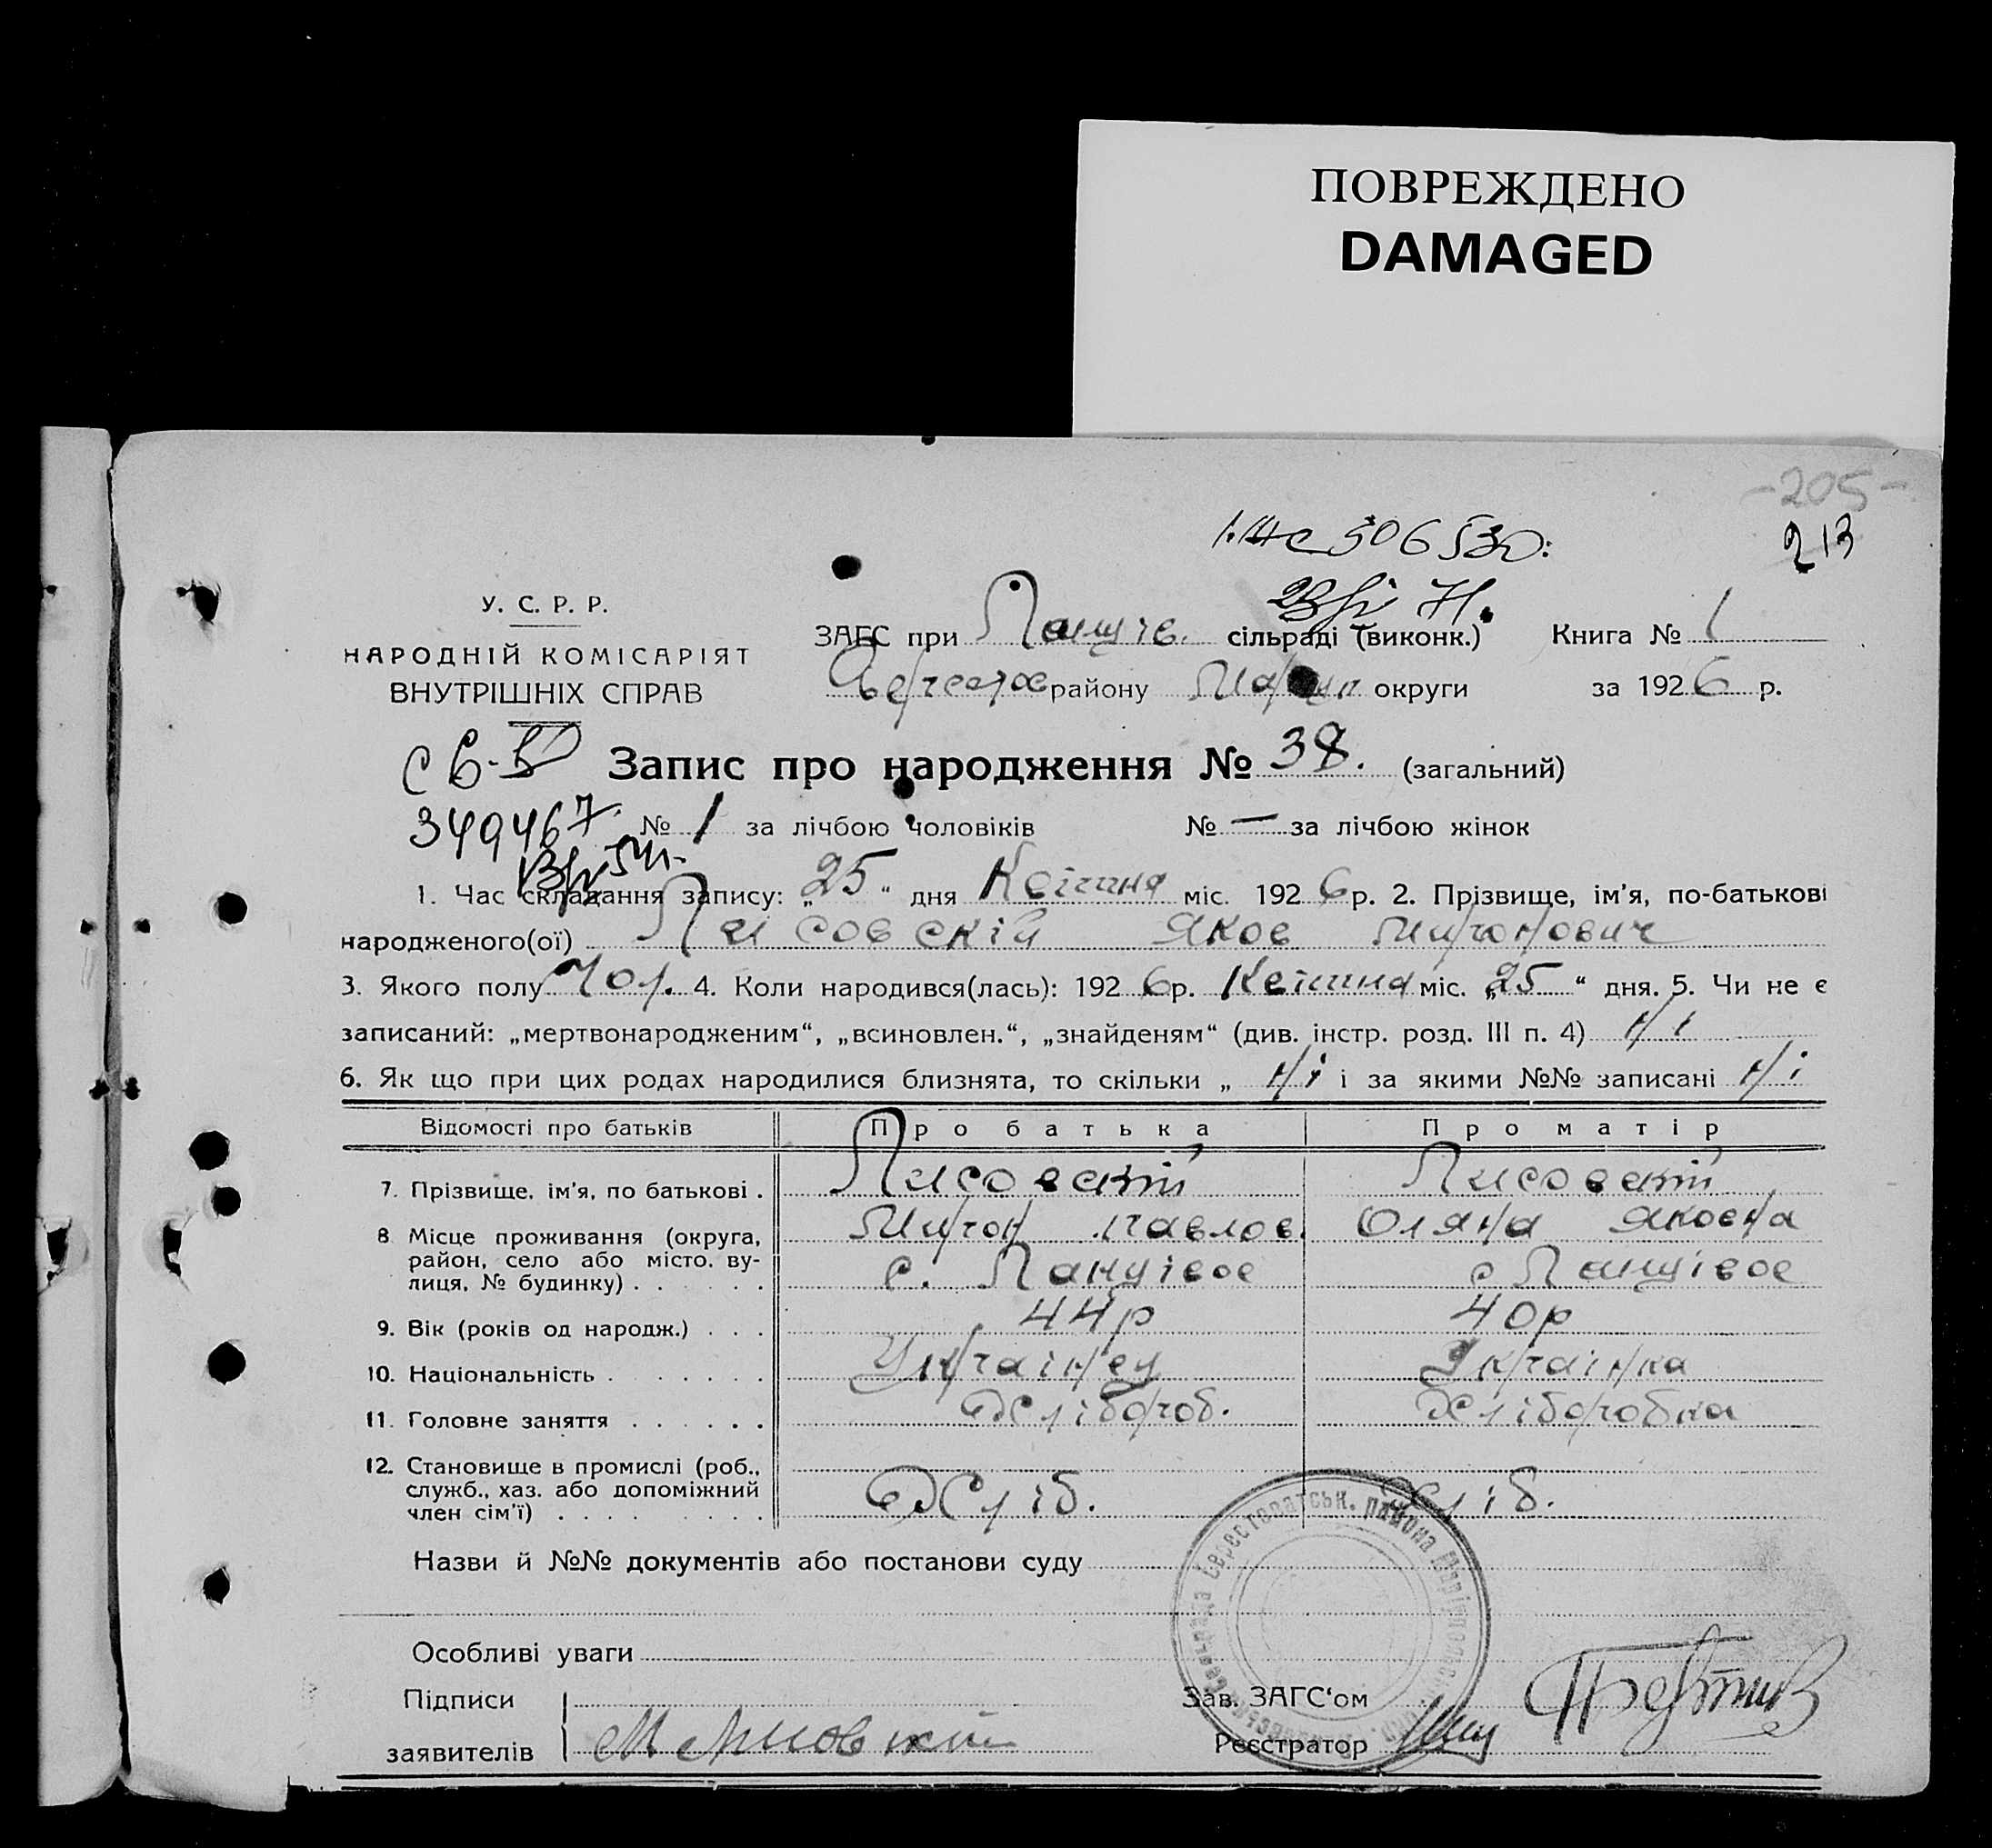 ПОВРЕЖДЕНО
DAMAGED
-205-
213
506530
У. С. Р. Р.
НАРОДНІЙ КОМІСАРІЯТ
ВНУТРІШНІХ СПРАВ
ЗАГС при сільраді (виконк.) Книга № 1
району округи за 1926 р.
Запис про народження № 38. (загальний)
349467. № 1 за лічбою чоловіків № — за лічбою жінок
1. Час складання запису: „25“ дня Квітня міс. 1926 р. 2. Прізвище, ім'я, по-батькові
народженого(ої) Лисовскій Яков Миронович
3. Якого полу Чол. 4. Коли народився(лась): 1926 р. Квітня міс. „25“ дня. 5. Чи не є
записаний: „мертвонародженим“, „всиновлен.“, „знайденям“ (див. інстр. розд. III п. 4) Ні
6. Як що при цих родах народилися близнята, то скільки „ Ні і за якими №№ записані Ні
Відомості про батьків Про батька Про матір
7. Прізвище, ім'я, по батькові . Лисовскій Лисовскій
Мирон Павлов. Оляна Яковна
8 Місце проживання (округа, район, село або місто, вулиця, № будинку) . . . . . с. с
9. Вік (років од народж.) . . . 44р 40р
10. Національність . . . . . . . Українец Українка
11. Головне заняття . . . . . . Хлібороб. Хліборобка
12. Становище в промислі (роб., служб., хаз. або допоміжний член сім'ї) . . . . . . . . Хліб. Хліб.
Назви й №№ документів або постанови суду
Особливі уваги
Підписи
заявителів
Зав. ЗАГС‘ом
Реєстратор